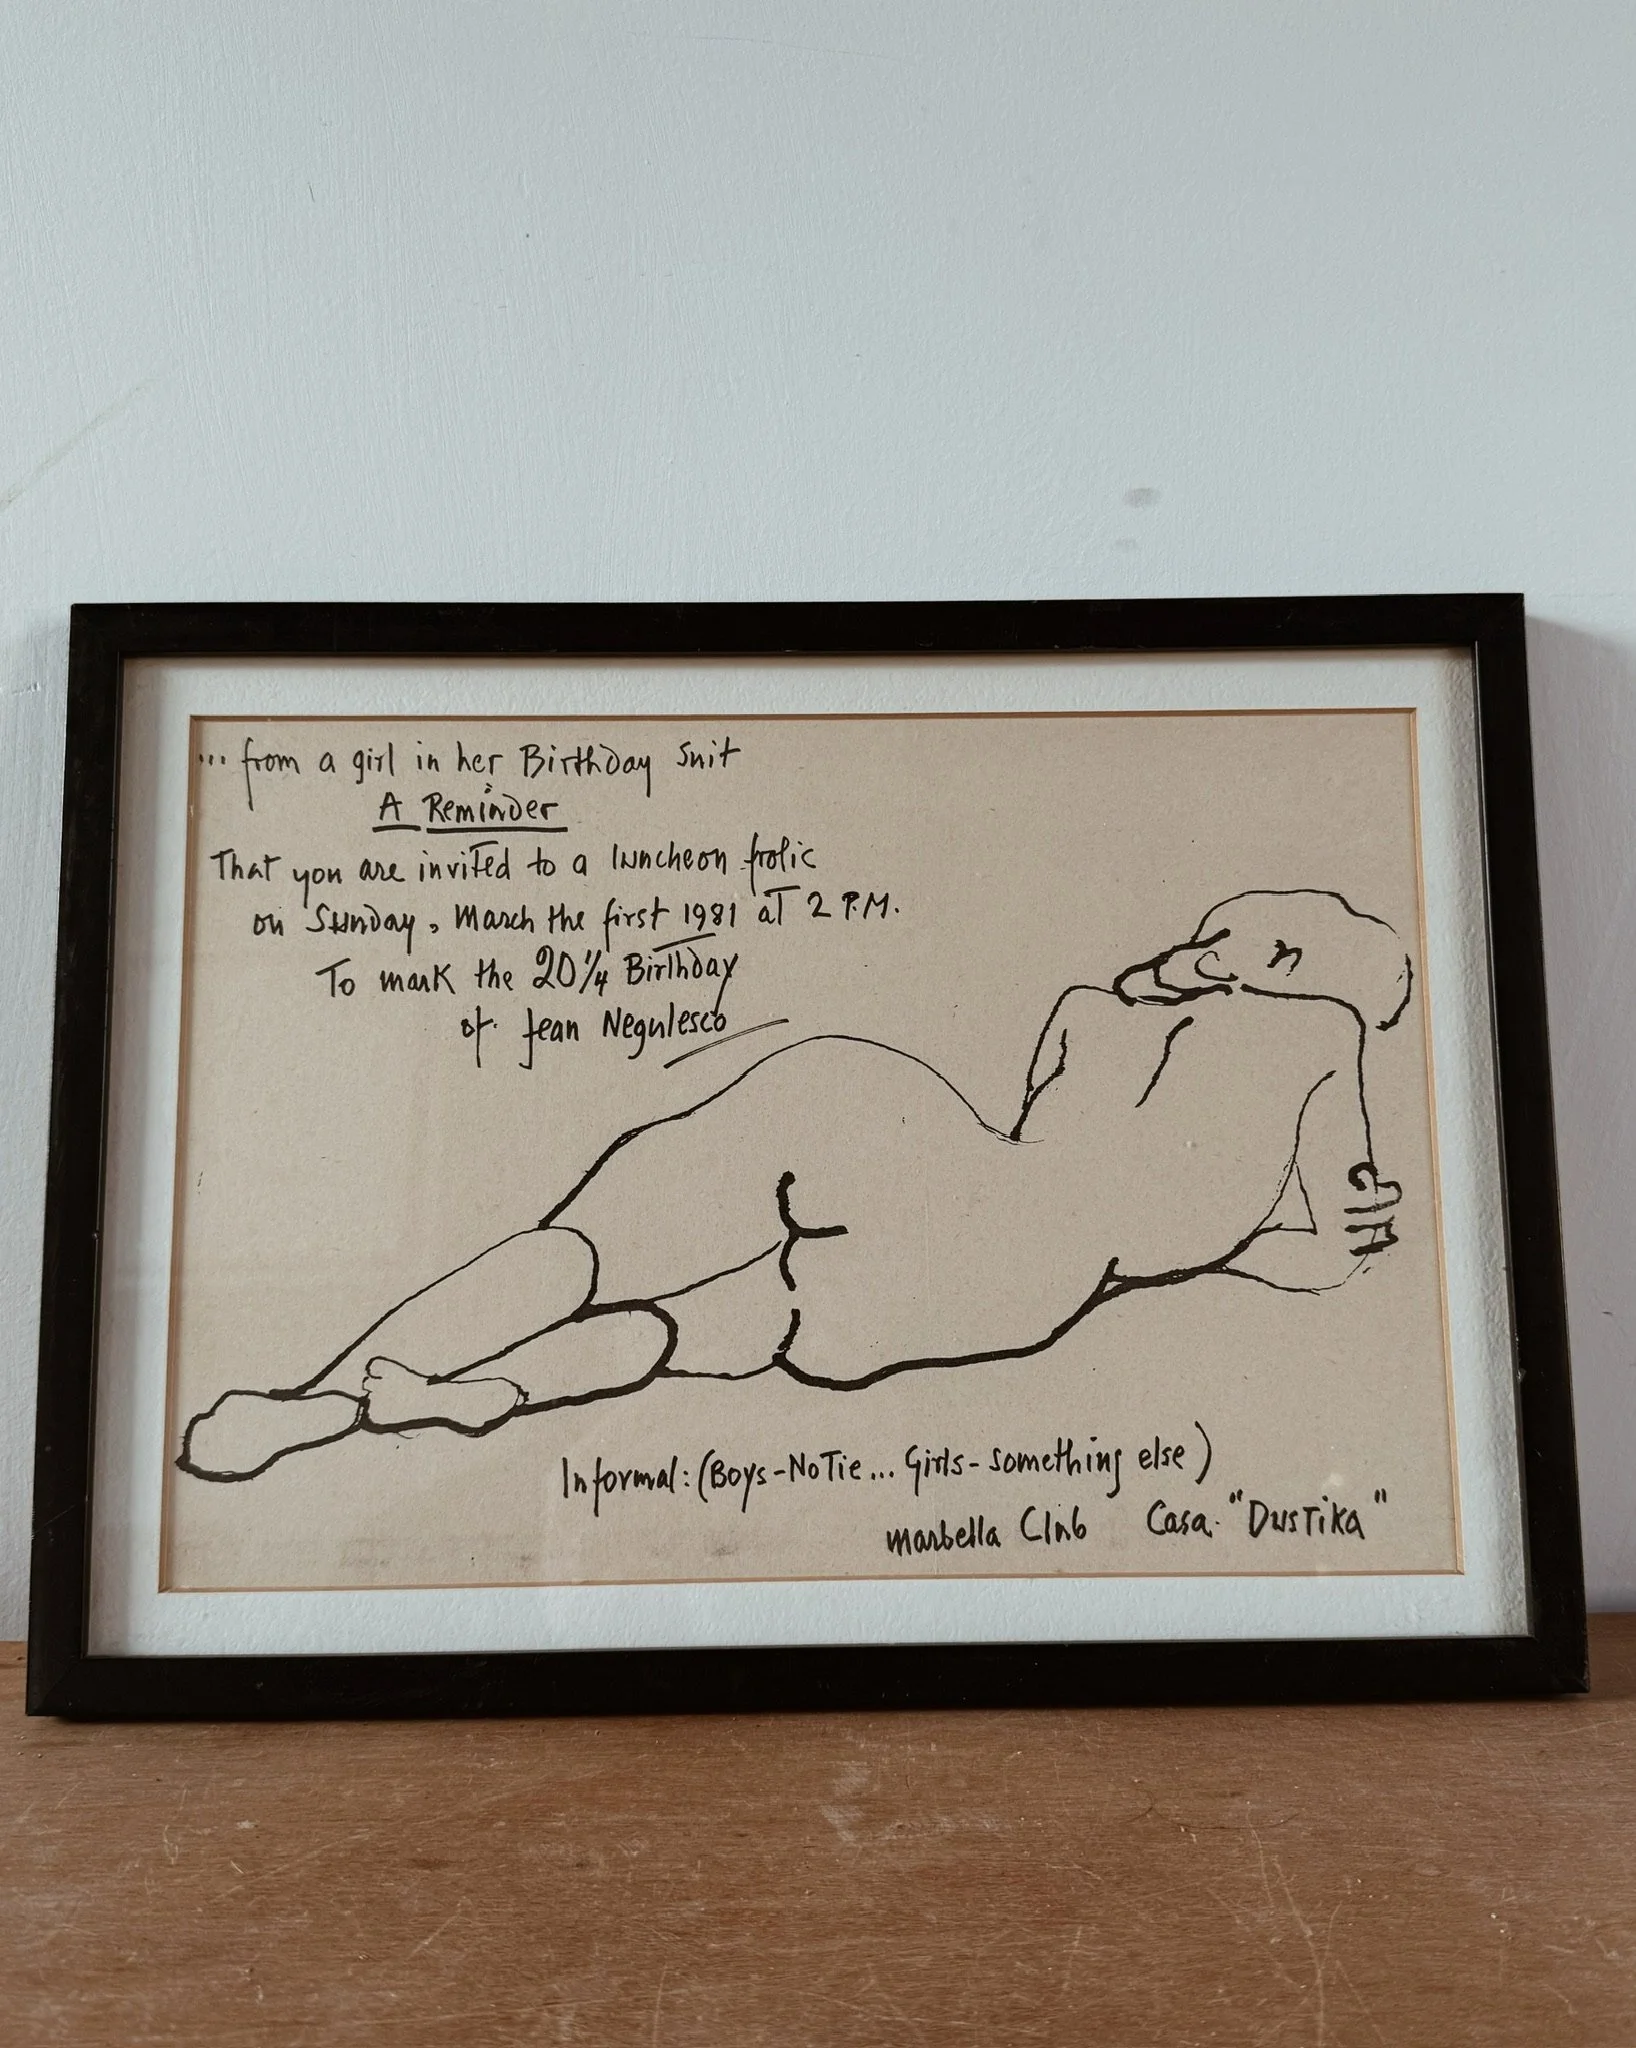 ... from a girl in her Birthday suit
A Reminder
That you are invited to a luncheon frolic
on Sunday, March the first 1981 at 2 P.M.
To mark the 20 1/4 Birthday
of Jean Negulesco
Informal: (Boys-No Tie... Girls-something else)
Marbella Club Casa "Dustika"